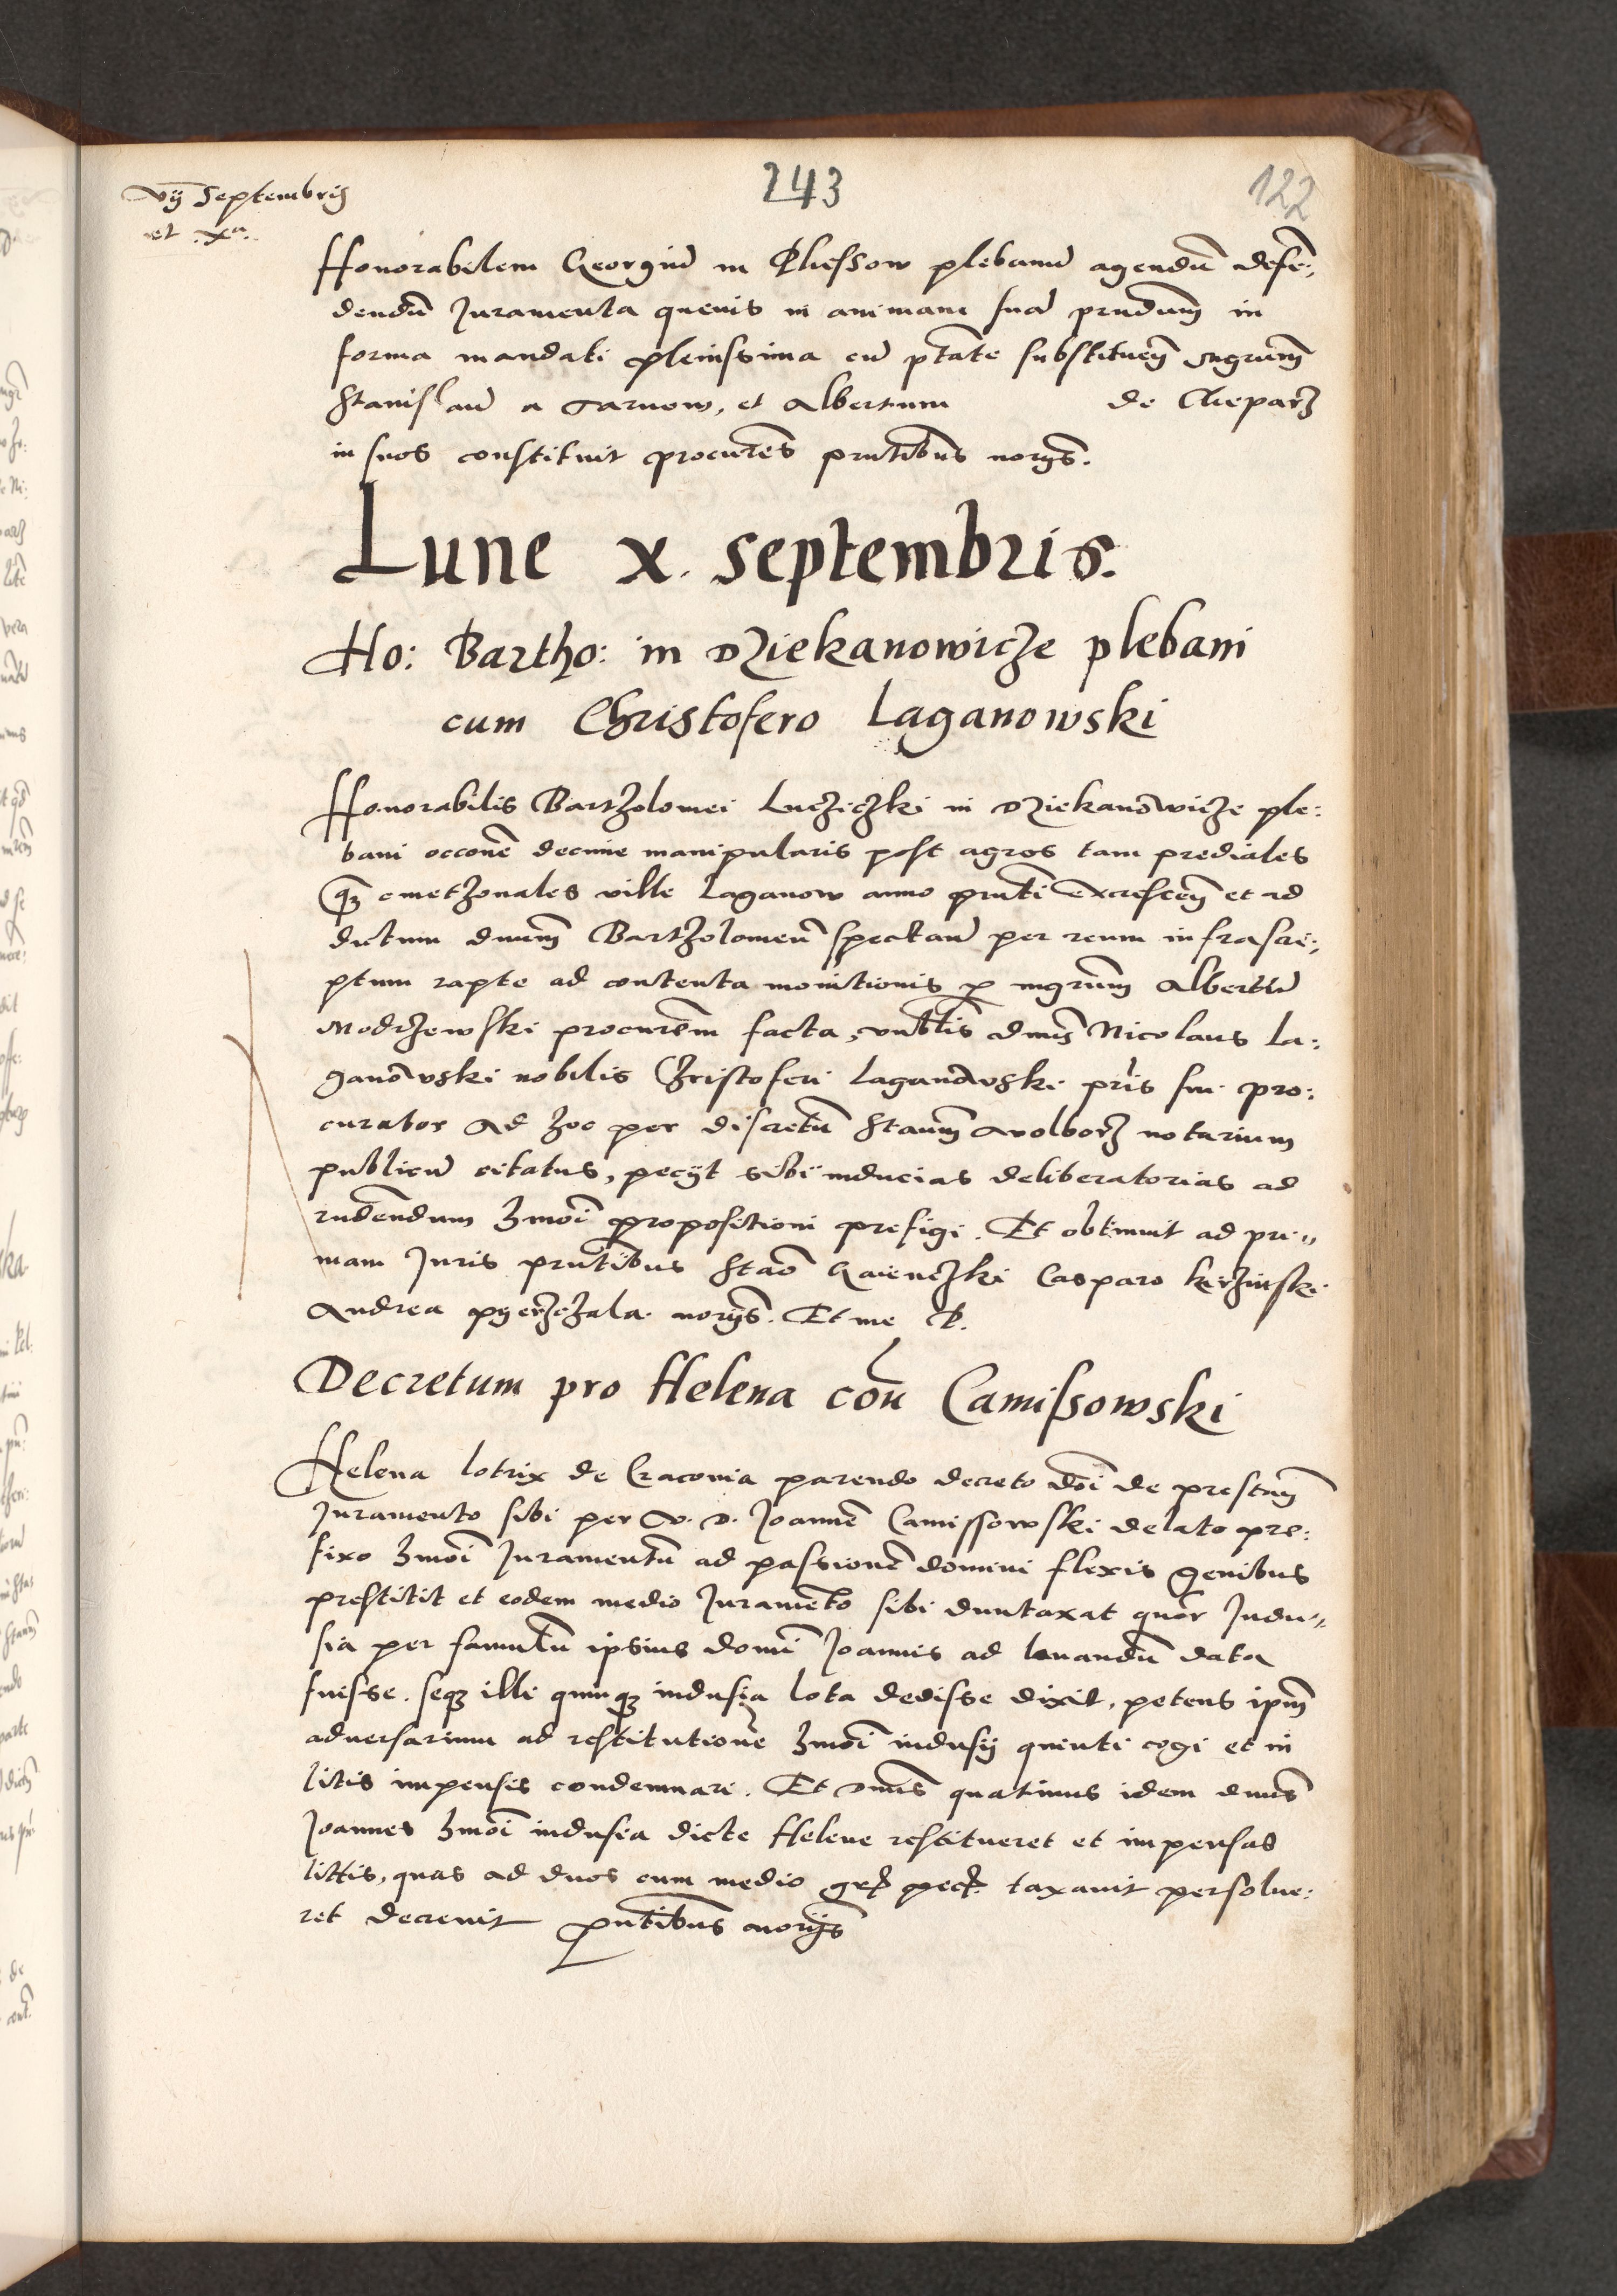 243
122
vij Septembris
et xa.
Honorabilem Georgiũ in Plessow plebanũ agendũ defẽ:
dendũ Juramenta quevis in animam suã prndum̃ in
forma mandati plenissima cũ ptãte substituen̄ mgrum̃
Stanislaũ a Tarnow, et Albertum de Cleparz
in suos constituit procurẽs prntibus norijs.
Lune x. septembris.
Ho: Bartho: in Dziekanowicze plebani
cum Christofero Laganowski
Honorabilis Bartholomei Lucziczki in Dziekanowicze ple:
bani occonẽ decime manipularis post agros tam prediales
q̃z cmethonales ville Laganow anno prñti excrescen̄ et ad
dictum dnum̃ Bartholomeũ spectan̄ per reum infrascri:
ptum rapte ad contenta monitionis p mgrum̃ Albertũ
Modrzewski procurem̃ facta, vnblis dnus̃ Nicolaus La:
ganowski nobilis Christoferi Laganowski pris̃ sui pro:
curator ad hoc per discretũ Staum̃ Wolborz notarium
publicũ citatus, pecijt sibi inducias deliberatorias ad
rndendum hmõi propositioni prefigi. Et obtinuit ad pri"
mam Juris prntibus Stao Gaienczki Casparo kerzinski
Andrea pyerzchala norijs. Et me P.
Decretum pro Helena cõn Camissowski
Helena lotrix de Cracovia parendo decreto doĩ de prestan̄
Juramento sibi per V. D. Joannẽ Camissowski delato pre:
fixo hmõi Juramentũ ad passionẽ domini flexis genibus
prestitit et eodem medio Juramẽto sibi duntaxat quõr Indu"
sia per famulũ ipsius domĩ Joannis ad lavandũ data
fuisse. seqz illi quinqz indusia lota dedisse dixit, petens ipm̃
adversarium ad restitutionẽ hmõi indusij quinti cogi et in
litis impensis condemnari. Et dnus̃ quatinus idem dnus̃
Joannes hmõi indusia dicte Helene restitueret et impensas
littis, quas ad duos cum medio gr̃ pec̃. taxavit persolve:
ret decrevit pntibus norijs